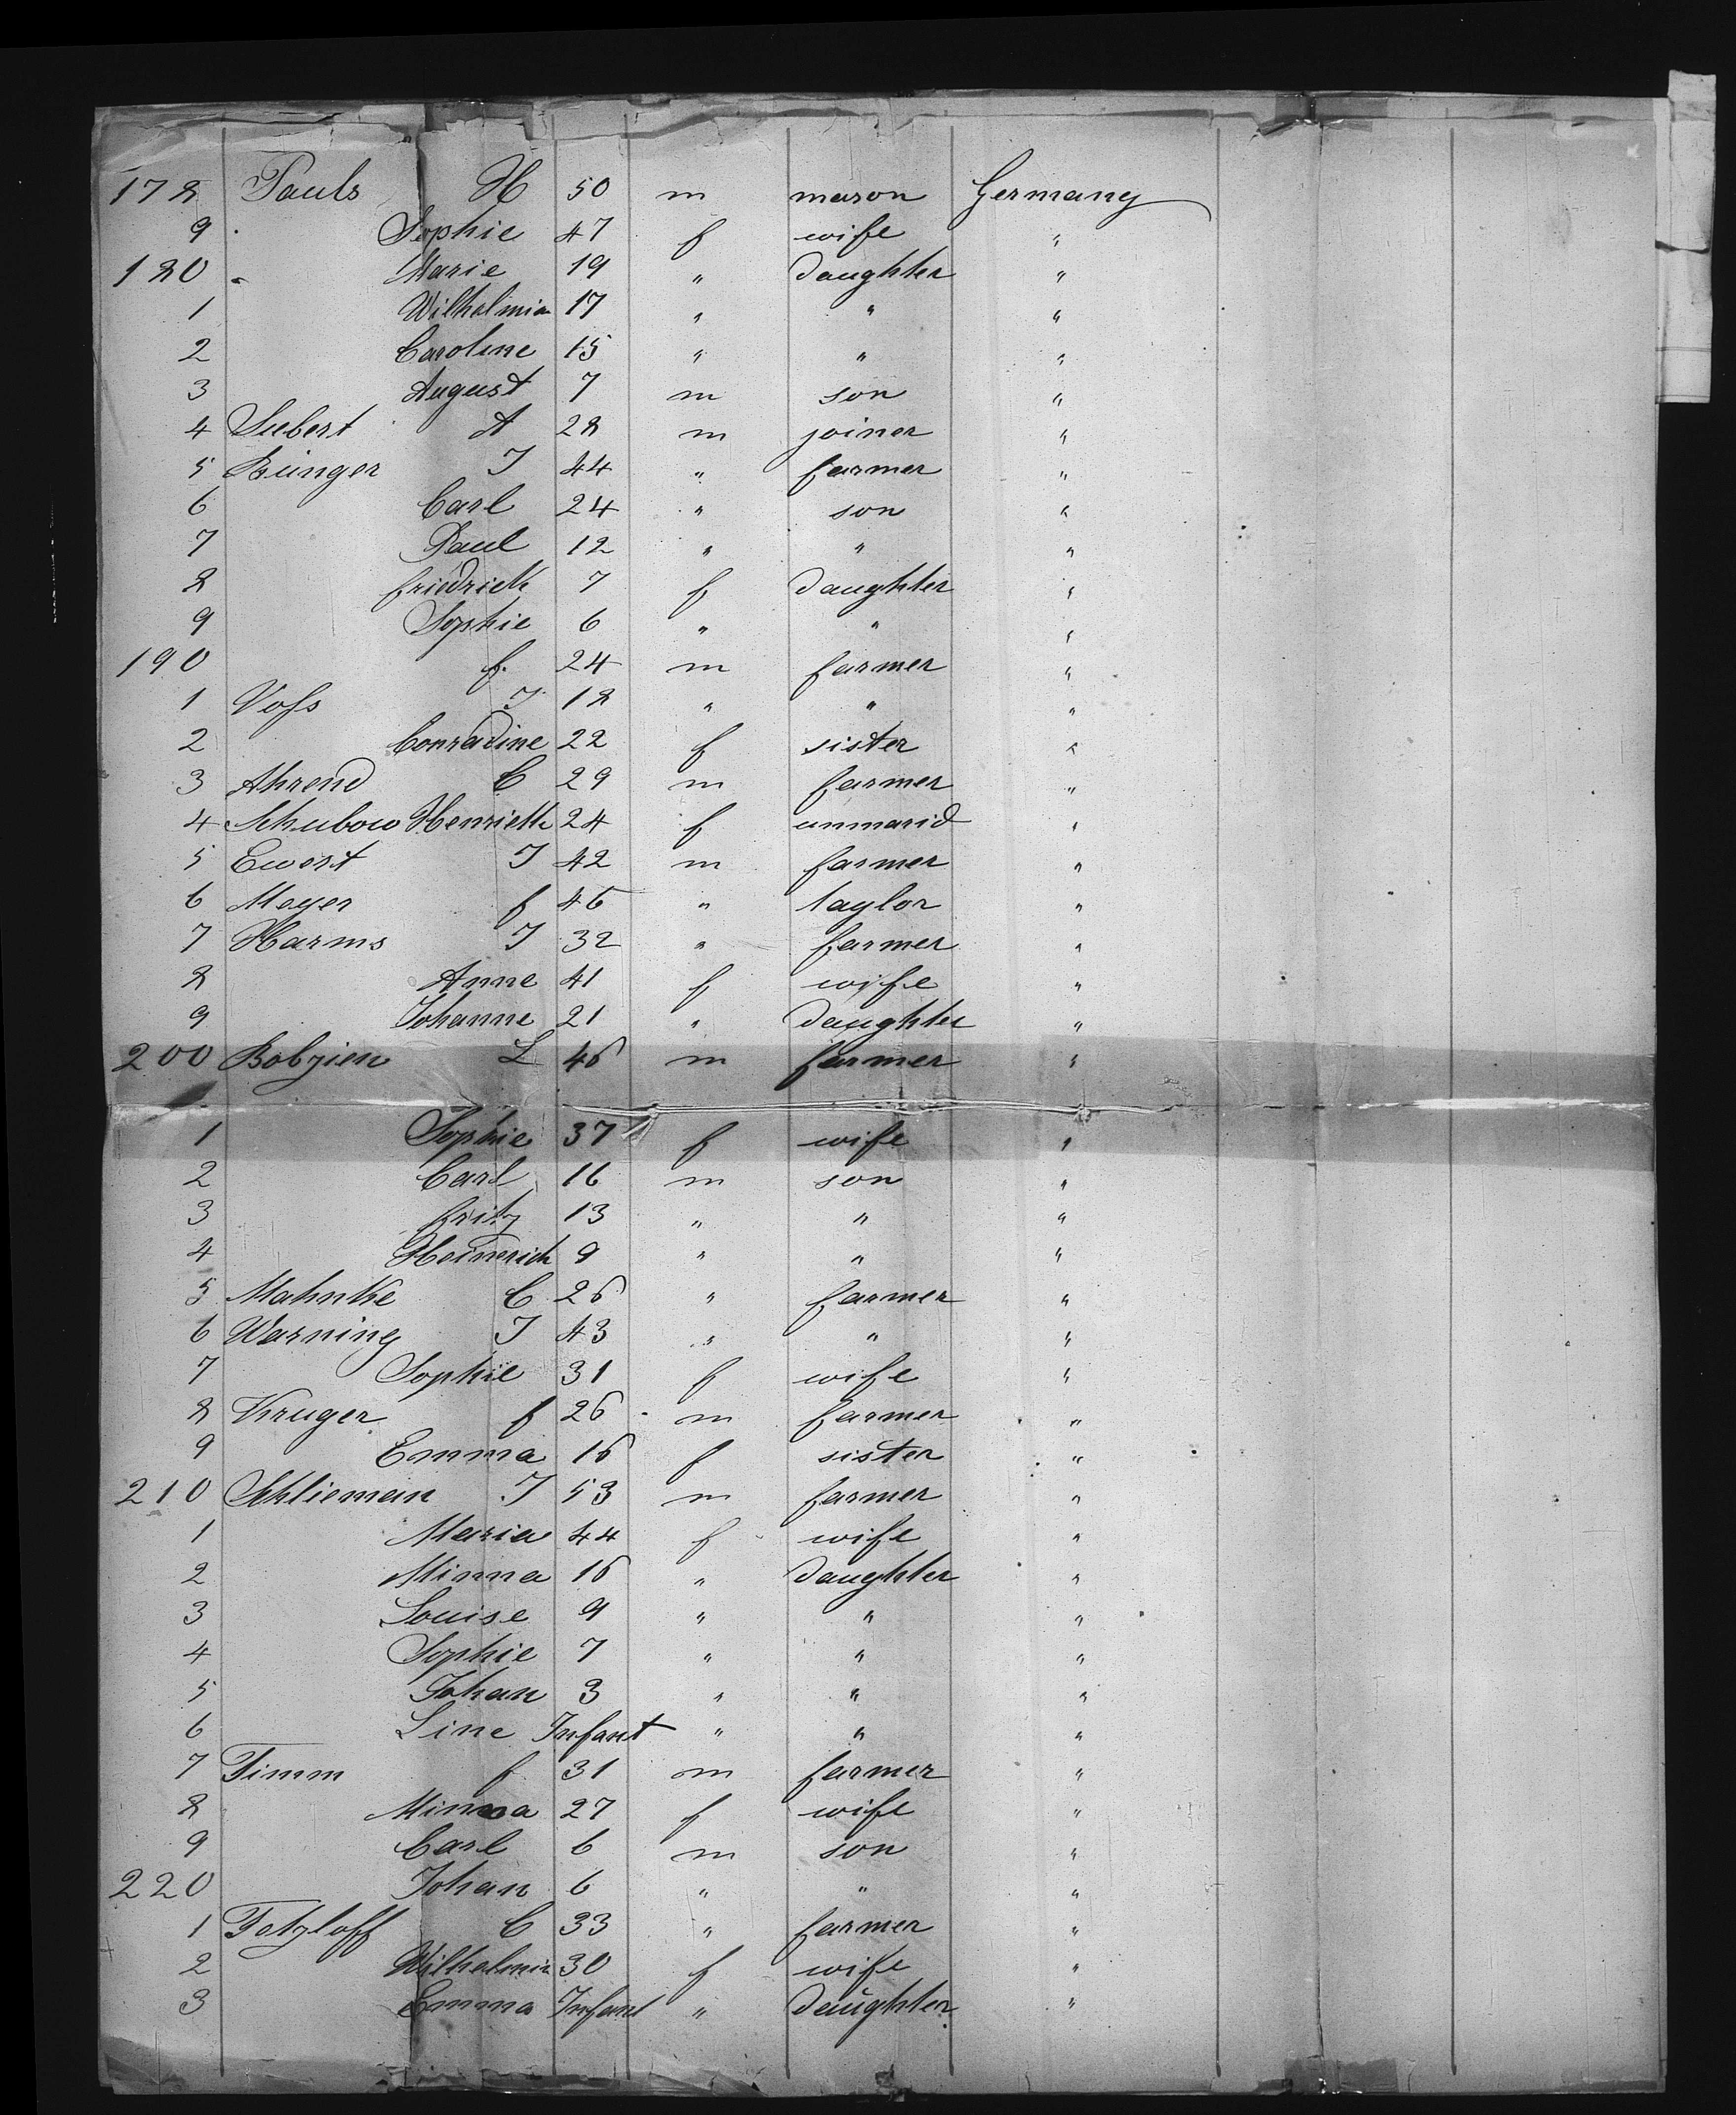 178 Pauls H 50 m mason Germany
9 Sophie 47 f wife "
180 Marie 19 " daughter "
1 Wilhelmin 17 " " "
2 Caroline 15 " " "
3 August 7 m son "
4 Siebert A 28 m joiner "
5 Bünger J 44 " farmer "
6 Carl 24 " son "
7 Paul 12 " " "
8 friedrick 7 f daughter "
9 Sophie 6 " " "
190 f. 24 m farmer "
1 Voss J 18 " " "
2 Conradine 22 f sister "
3 Ahrend C 29 m farmer "
4 Schubow Henriette 24 f unmarid "
5 Ewert J 42 m farmer "
6 Meyer f 46 " taylor "
7 Harms J 32 " farmer "
8 Anne 41 f wife "
9 Johanne 21 " daughter "
200 Bobzien L 46 m farmer "
1 Sophie 37 f wife "
2 Carl 16 m son "
3 fritz 13 " " "
4 Heinrich 9 " " "
5 Mahnke C 26 " farmer "
6 Warning J 43 " " "
7 Sophie 31 f wife "
8 Kruger f 26 m farmer "
9 Emma 16 f sister "
210 Schlieman J 53 m farmer "
1 Maria 44 f wife "
2 Minna 16 " daughter "
3 Louise 9 " " "
4 Sophie 7 " " "
5 Johan 3 " " "
6 Line Infant " " "
7 Timm f 31 m farmer "
8 Minna 27 f wife "
9 Carl 6 m son "
220 Johan 6 " " "
1 Tetzloff C 33 " farmer "
2 Wilhelmin 30 f wife "
3 Emma Infant " daughter "